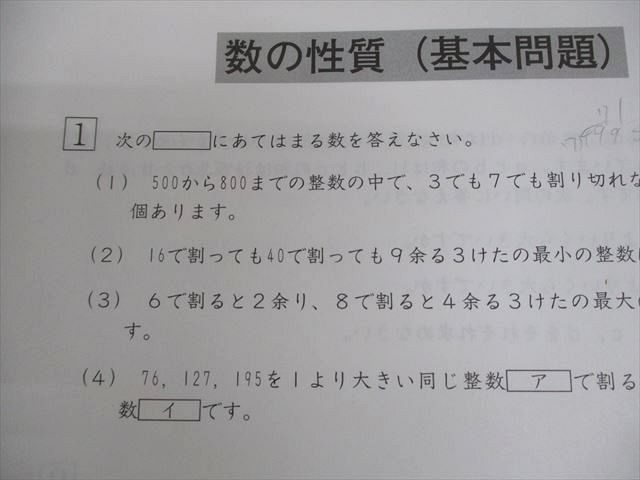 数の性質（基本問題）
1 次の□にあてはまる数を答えなさい。
（1） 500から800までの整数の中で、3でも7でも割り切れな
個あります。
（2） 16で割っても40で割っても9余る3けたの最小の整数
（3） 6で割ると2余り、8で割ると4余る3けたの最大
す。
（4） 76, 127, 195を1より大きい同じ整数 ア で割る
数 イ です。